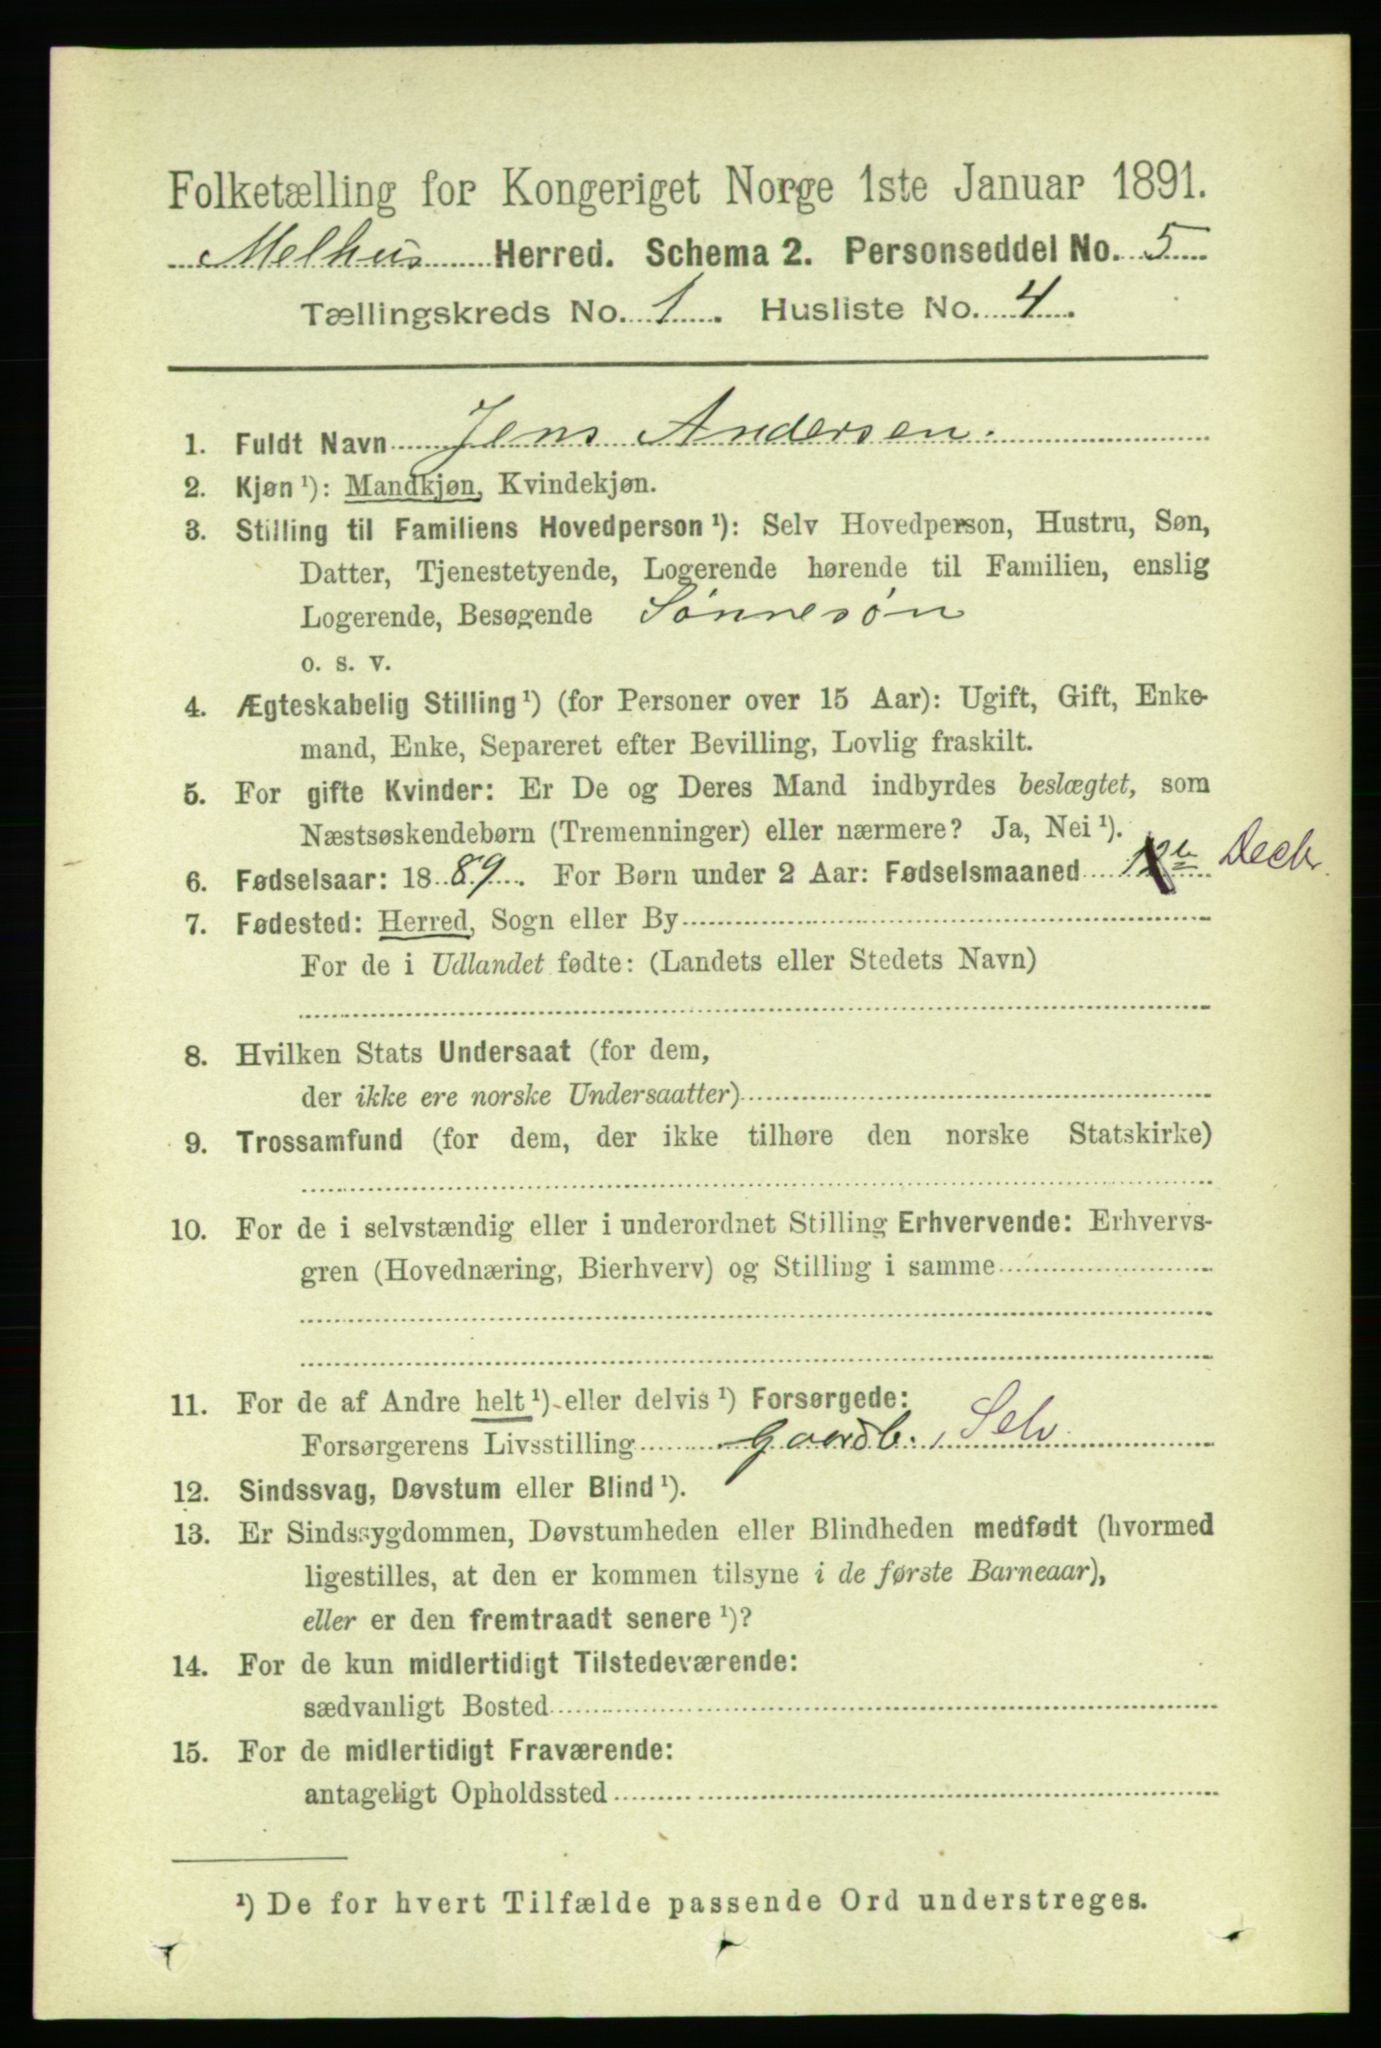 Folketælling for Kongeriget Norge 1ste Januar 1891.
Melhus Herred. Schema 2. Personseddel No. 5
Tællingskreds No. 1. Husliste No. 4.
1. Fuldt Navn Jens Andersen.
2. Kjøn¹): Mandkjøn, Kvindekjøn.
3. Stilling til Familiens Hovedperson¹): Selv Hovedperson, Hustru, Søn,
Datter, Tjenestetyende, Logerende hørende til Familien, enslig
Logerende, Besøgende Sønnesøn
o. s. v.
4. Ægteskabelig Stilling¹) (for Personer over 15 Aar): Ugift, Gift, Enke-
mand, Enke, Separeret efter Bevilling, Lovlig fraskilt.
5. For gifte Kvinder: Er De og Deres Mand indbyrdes beslægtet, som
Næstsøskendebørn (Tremenninger) eller nærmere? Ja, Nei¹).
6. Fødselsaar: 1889. For Børn under 2 Aar: Fødselsmaaned Decbr.
7. Fødested: Herred, Sogn eller By
For de i Udlandet fødte: (Landets eller Stedets Navn)
8. Hvilken Stats Undersaat (for dem,
der ikke ere norske Undersaatter)
9. Trossamfund (for dem, der ikke tilhøre den norske Statskirke)
10. For de i selvstændig eller i underordnet Stilling Erhvervende: Erhvervs-
gren (Hovednæring, Bierhverv) og Stilling i samme
11. For de af Andre helt¹) eller delvis¹) Forsørgede:
Forsørgerens Livsstilling Gaardb., Selv
12. Sindssvag, Døvstum eller Blind¹).
13. Er Sindssygdommen, Døvstumheden eller Blindheden medfødt (hvormed
ligestilles, at den er kommen tilsyne i de første Barneaar),
eller er den fremtraadt senere¹)?
14. For de kun midlertidigt Tilstedeværende:
sædvanligt Bosted
15. For de midlertidigt Fraværende:
antageligt Opholdssted
¹) De for hvert Tilfælde passende Ord understreges.